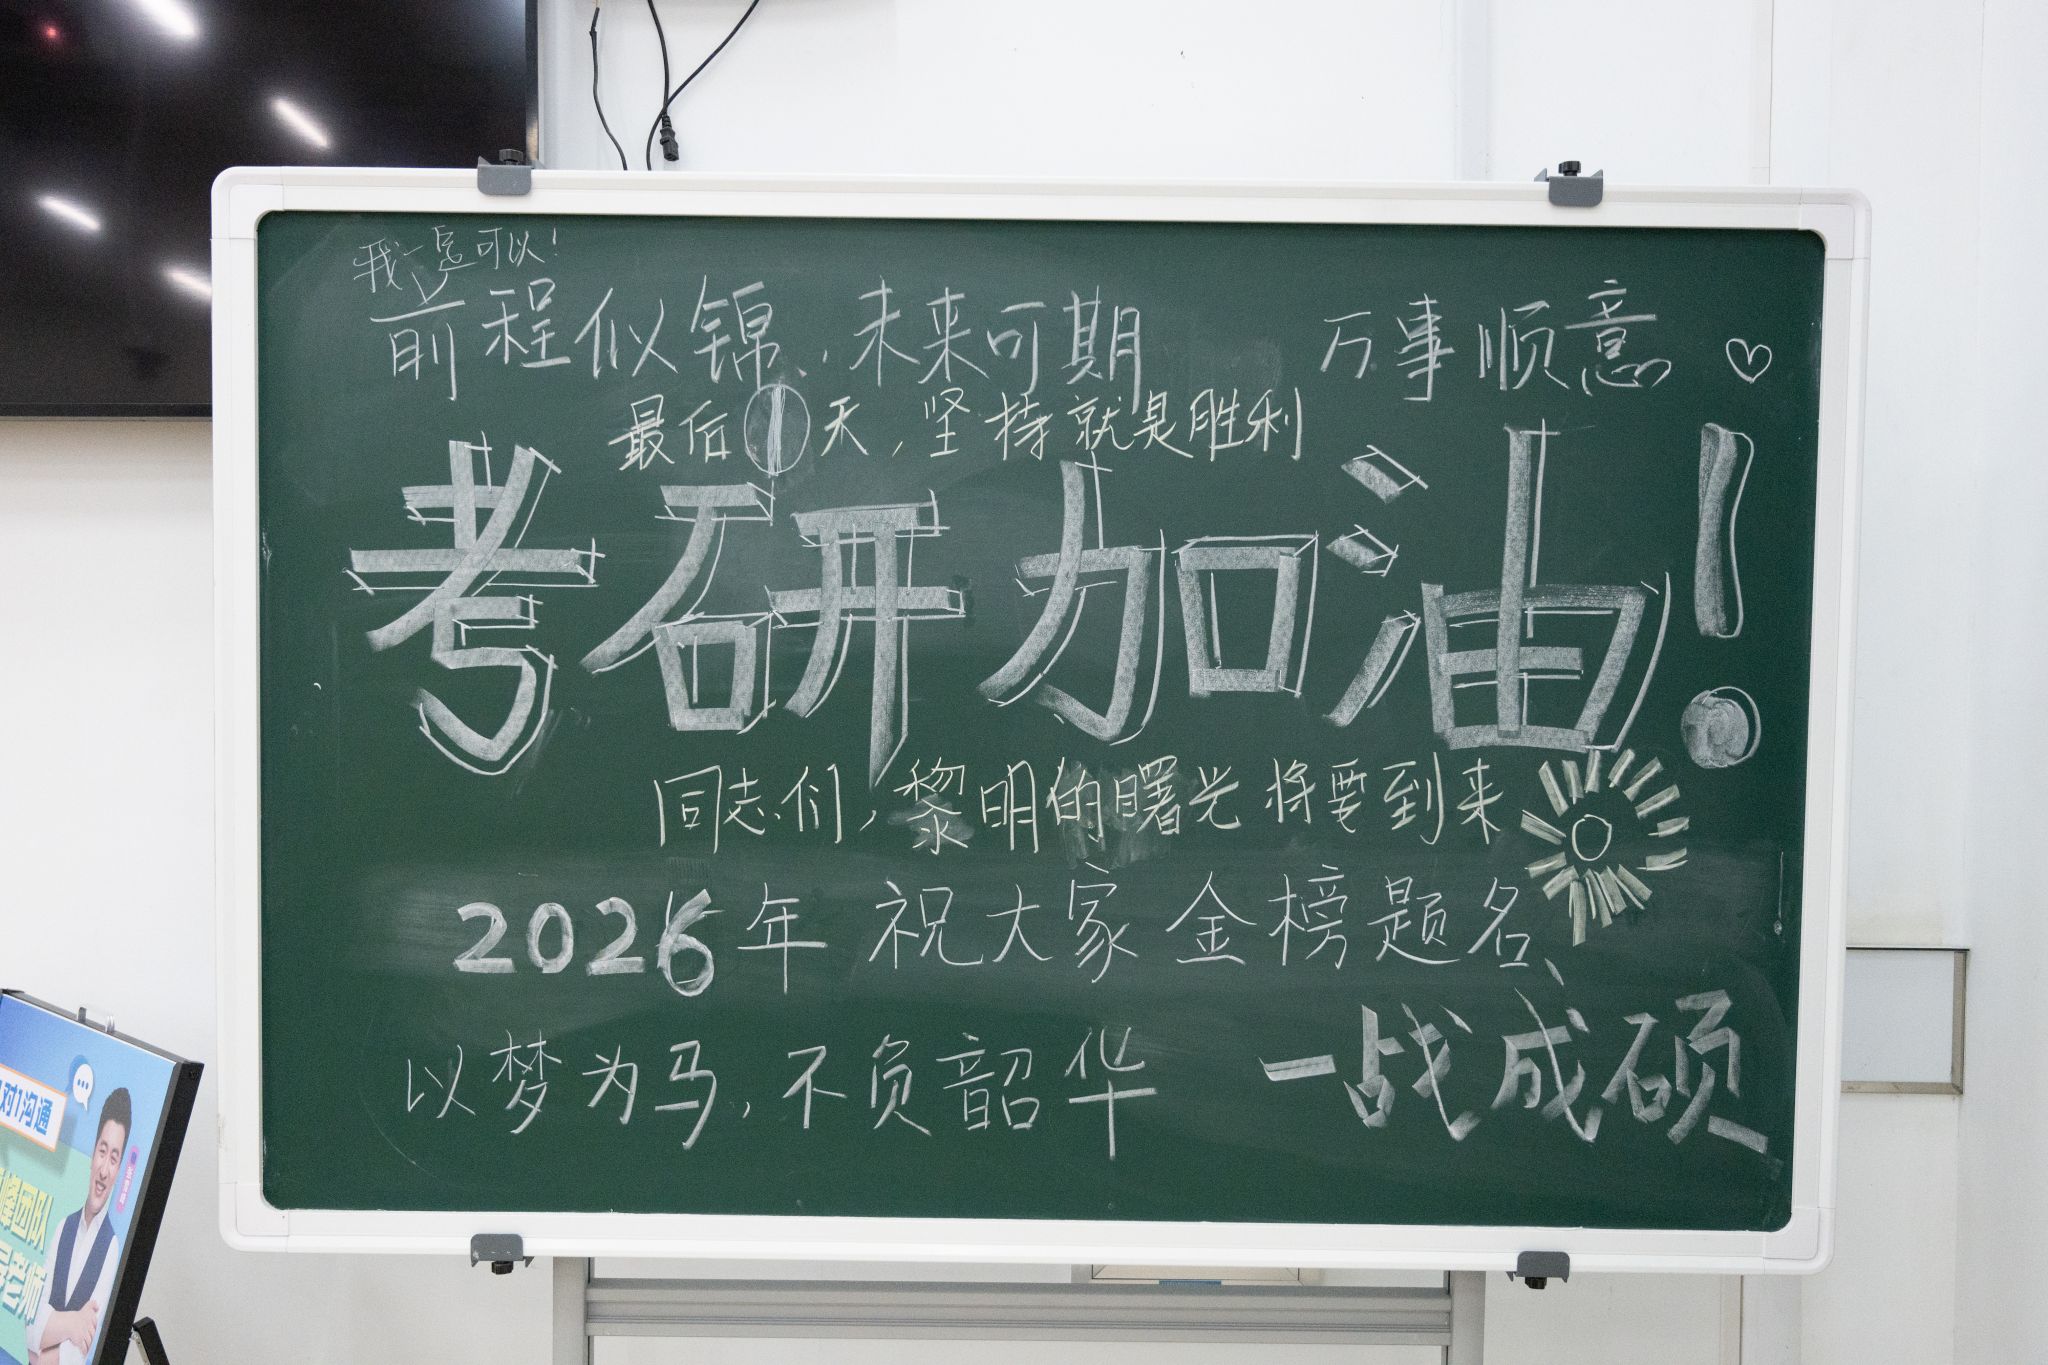 我一定可以！
前程似锦，未来可期 万事顺意
最后1天，坚持就是胜利
考研加油！
同志们，黎明的曙光将要到来
2026年 祝大家金榜题名
以梦为马，不负韶华 一战成硕
对1沟通
峰团队
老师